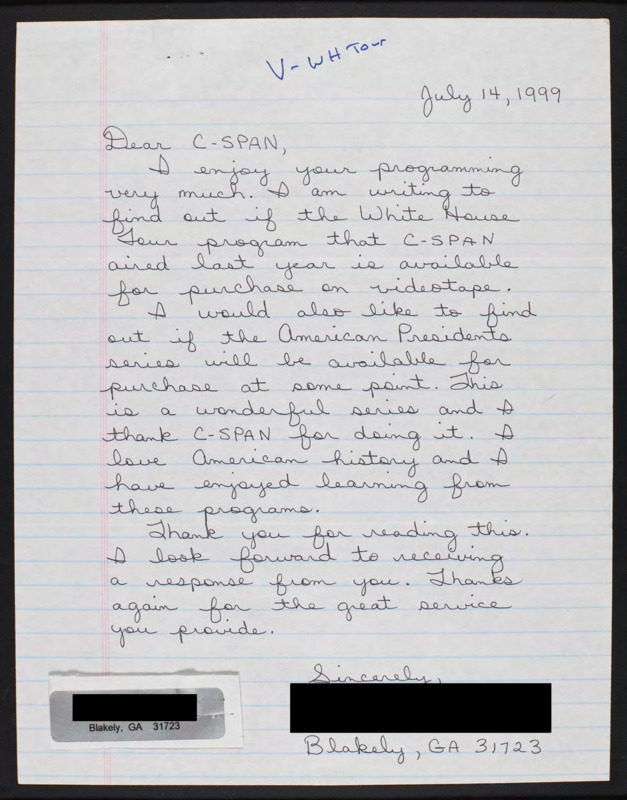 V- WH Tour
July 14, 1999
Dear C-SPAN,
I enjoy your programming
very much. I am writing to
find out if the White House
Tour program that C-SPAN
aired last year is available
for purchase on videotape.
I would also like to find
out if the American Presidents
series will be available for
purchase at some point. This
is a wonderful series and I
thank C-SPAN for doing it. I
love American history and I
have enjoyed learning from
these programs.
Thank you for reading this.
I look forward to receiving
a response from you. Thanks
again for the great service
you provide.
Sincerely,
Blakely, GA 31723
Blakely, GA 31723